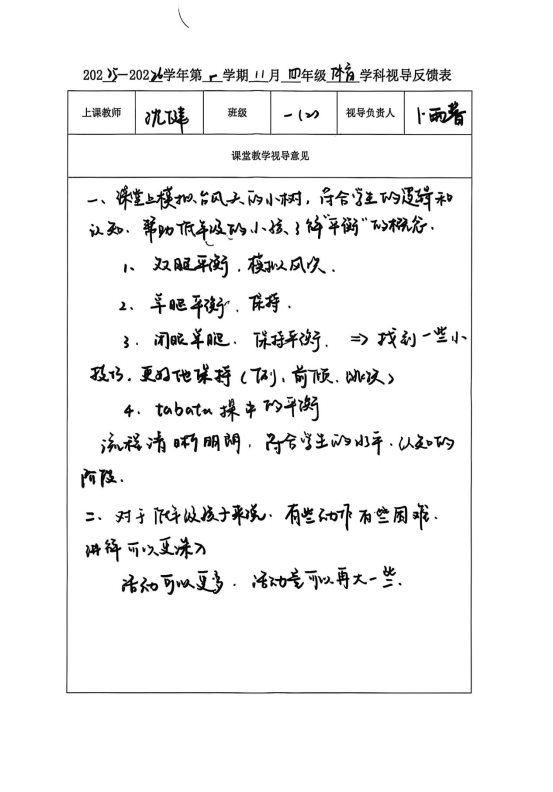 2025-2026学年第一学期11月四年级体育学科视导反馈表
上课教师 沈健 班级 一(2) 视导负责人 卜雨馨
课堂教学视导意见
一、课堂上模拟台风天的小树，符合学生的逻辑和
认知．帮助低年级的小孩了解“平衡”的概念．
1、双腿平衡，模拟风吹．
2、单腿平衡，保持．
3．闭眼单腿．保持平衡． => 找到一些小
技巧．更好地保持（例：前倾、
4．tabata操中的平衡
流程清晰明朗，符合学生的水平、认知的
阶段．
二、对于低年级孩子来说．有些动作有些困难．
讲解可以更深入
活动可以更多．活动量可以再大一些．